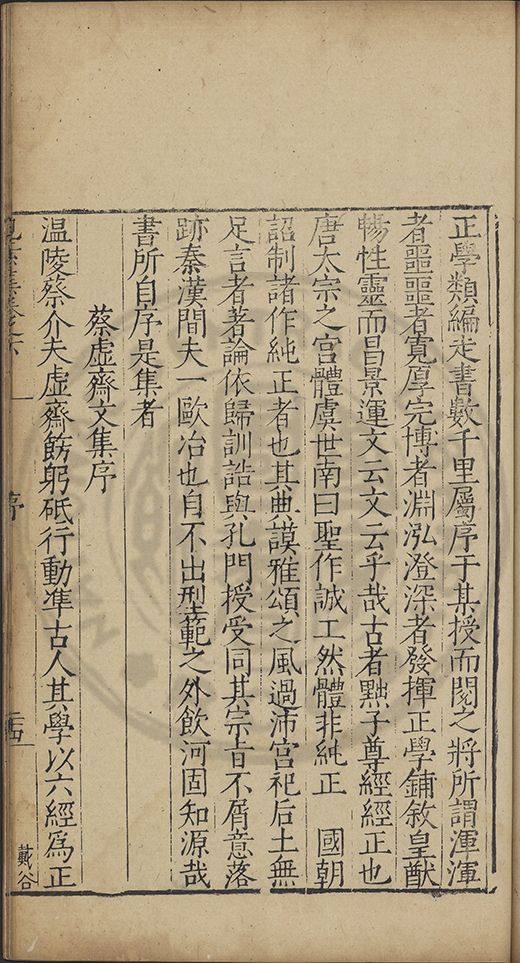 正學類編走書數千里屬序于某授而閱之將所謂渾渾
者噩噩者寬厚完博者淵泓澄深者發揮正學鋪敘皇猷
暢性靈而昌景運文云文云乎哉古者黜子尊經經正也
唐太宗之宮體虞世南曰聖作誠工然體非純正　國朝
詔制諸作純正者也其典謨雅頌之風過沛宮祀后土無
足言者著論依歸訓誥與孔門授受同其宗旨不屑意落
跡秦漢間夫一歐冶也自不出型範之外飲河固知源哉
書所自序是集者
蔡虛齋文集序
温陵蔡介夫虛齋飭躬砥行動準古人其學以六經爲正
序
戴谷